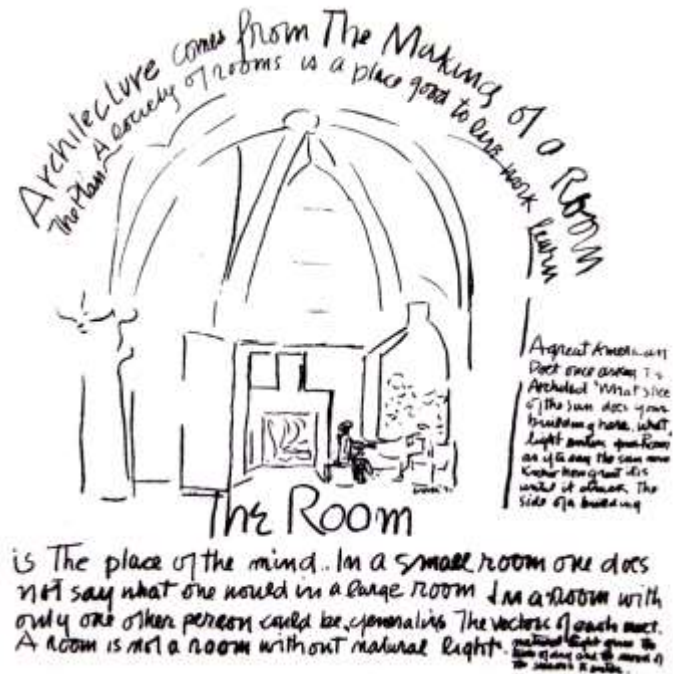 Architecture comes from The Making of a Room
The Plan A society of rooms is a place good to live work learn
A great American
Poet once asked The
Architect 'What slice
of the sun does your
building have. What
light enters your Room
as if to say the sun never
knew how great it is
until it struck The
side of a building
The Room
is The place of the mind. In a small room one does
not say what one would in a large room In a room with
only one other person could be generative The vectors of each meet.
A room is not a room without natural light. natural light gives the
time of day and the mood of
the seasons to enter.